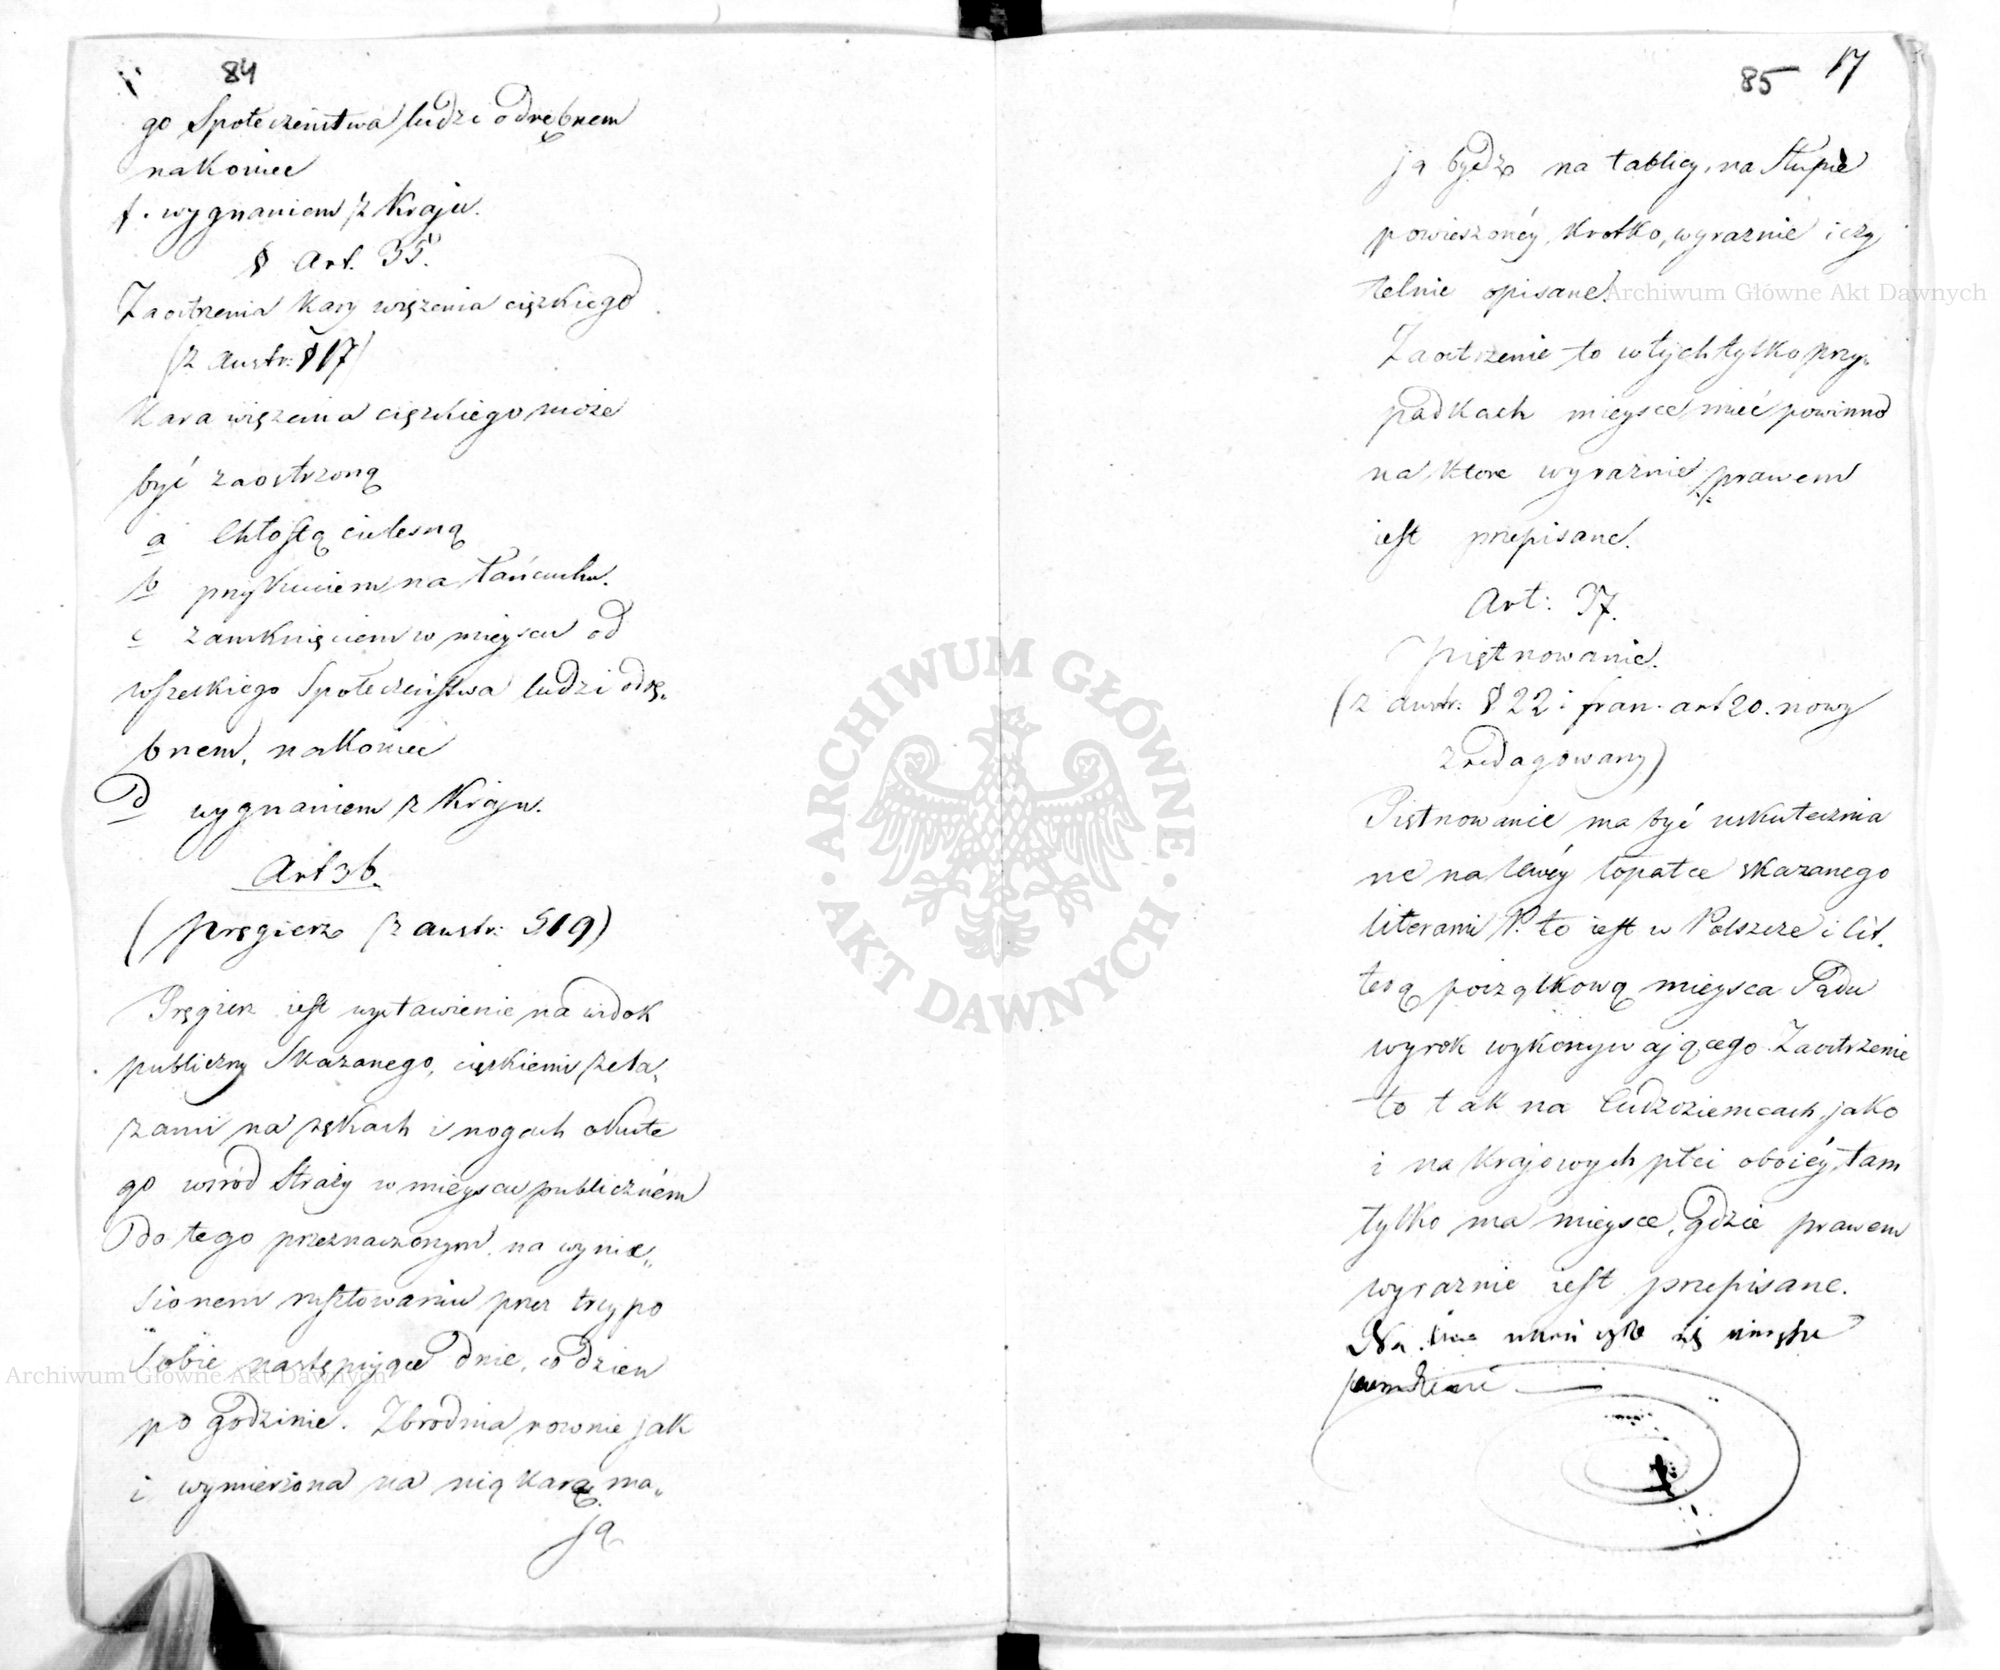 84
go Społeczeństwa ludzi odrębnem
nakoniec
f. wygnaniem z Kraju.
§ Art. 35.
Zaostrzenia Kary więzenia cięzkiego
(z austr: § 17)
Kara więzenia cięzkiego może
być zaostrzoną
a Chłostą cielesną
b przykuciem na łańcuchu.
c zamknięciem w mieyscu od
wszelkiego Społeczeństwa ludzi odrę„
bnem, nakoniec
d wygnaniem z Kraju.
Art 36.
(pręgierz z austr: § 19)
Pręgierz iest wystawienie na widok
publiczny Skazanego, cięzkiemi żela„
zami na rękach i nogach okute
go wśród Straży w mieyscu publiczném
do tego przeznaczonym na wynie„
sionem rusztowaniu przez trzy po
sobie następujące dnie, co dzien
po godzinie. Zbrodnia rownie jak
i wymierzona na nią kara ma„
ją
85 17
ją bydz na tablicy, na Słupie
powieszonéy, krotko, wyraznie i czy
telnie opisane.
Zaostrzenie to w tych tylko przy„
padkach mieysce mieć powinno
na ktore wyraznie prawem
iest przepisane.
Art: 37.
Piętnowanie.
(z austr: § 22 i fran. art 20. nowy
zredagowany)
Piętnowanie ma być uskutecznia
ne na lewéy łopatce skazanego
literami P. to iest w Polszcze i lit.
terą początkową mieysca Sądu
wyrok wykonywającego. Zaostrzenie
to tak na Cudzoziemcach, jako
i na Krajowych płci oboiéy, tam
tylko ma mieysce, gdzie prawem
wyraznie iest przepisane.
Na
Archiwum Główne Akt Dawnych
Archiwum Główne Akt Dawnych
ARCHIWUM GŁÓWNE AKT DAWNYCH